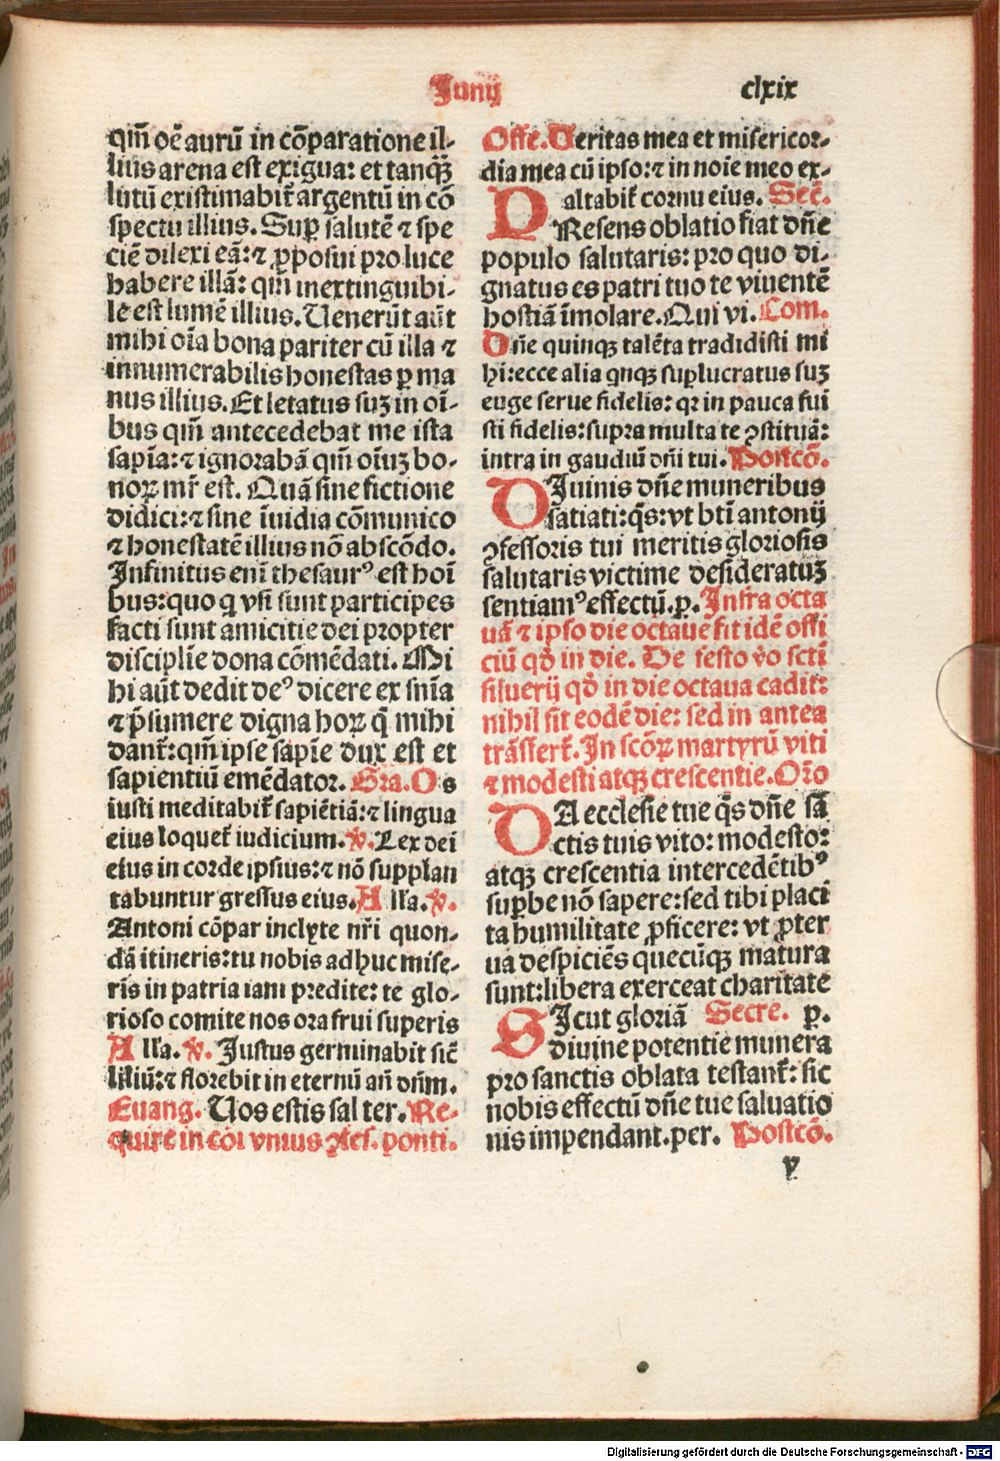 Junij
clxix
qm̄ oē aurū in cōparatione il-
lius arena est exigua: et tanqȝ
lutū existimabit̄ argentū in cō
spectu illius. Suꝑ salutē ⁊ spe
ciē dilexi eā: ⁊ ꝓposui pro luce
habere illā: qm̄ inextinguibi-
le est lumē illius. Uenerūt aūt
mihi oīa bona pariter cū illa ⁊
innumerabilis honestas ꝑ ma
nus illius. Et letatus suꝫ in oī-
bus qm̄ antecedebat me ista
sapīa: ⁊ ignorabā qm̄ oīuꝫ bo-
noꝝ mr̄ est. Quā sine fictione
didici: ⁊ sine īuidia cōmunico
⁊ honestatē illius nō abscōdo.
Infinitus enī thesaurꝰ est hoī
bus: quo q̄ vsi sunt participes
facti sunt amicitie dei propter
disciplīe dona cōmēdati. Mi
hi aūt dedit deꝰ dicere ex snīa
⁊ p̄sumere digna hoꝝ q̄ mihi
dant̄: qm̄ ipse sapīe dux est et
sapientiū emēdator. Gra. Os
iusti meditabit̄ sapiētiā: ⁊ lingua
eius loquet̄ iudicium. ℣. Lex dei
eius in corde ipsius: ⁊ nō supplan
tabuntur gressus eius. Alla. ℣.
Antoni cōpar inclyte nr̄i quon-
dā itineris: tu nobis adhuc mise-
ris in patria iam predite: te glo-
rioso comite nos ora frui superis
Alla. ℣. Justus germinabit sic̄
liliū: ⁊ florebit in eternū an̄ dn̄m.
Euang. Uos estis sal ter. Re-
quire in cōi vnius ꝯfes. ponti.
Offe. Ueritas mea et misericor-
dia mea cū ipso: ⁊ in noīe meo ex-
altabit̄ cornu eius. Sec̄.
PResens oblatio fiat dn̄e
populo salutaris: pro quo di-
gnatus es patri tuo te viuentē
hostiā īmolare. Qui vi. Com.
Dn̄e quinqȝ talēta tradidisti mi
hi: ecce alia qnqȝ suꝑlucratus suꝫ
euge serue fidelis: qꝛ in pauca fui
sti fidelis: supra multa te ꝯstituā:
intra in gaudiū dn̄i tui. Postcō.
DIuinis dn̄e muneribus
satiati: q̄s: vt bt̄i antonij
ꝯfessoris tui meritis gloriosis
salutaris victime desideratuꝫ
sentiamꝰ effectū. ꝑ. Infra octa
uā ⁊ ipso die octaue fit idē offi
ciū qd̄ in die. De festo v̄o sctī
siluerij qd̄ in die octaua cadit:
nihil fit eodē die: sed in antea
trāsfert̄. In scōꝝ martyrū viti
⁊ modesti atqȝ crescentie. Or̄o
DA ecclesie tue q̄s dn̄e sā
ctis tuis vito: modesto:
atqȝ crescentia intercedētibꝰ
suꝑbe nō sapere: sed tibi placi
ta humilitate ꝓficere: vt ꝓter
ua despiciēs quecūqȝ matura
sunt: libera exerceat charitate
SIcut gloriā Secre. ꝑ.
diuine potentie munera
pro sanctis oblata testant̄: sic
nobis effectū dn̄e tue saluatio
nis impendant. per. Postcō.
y
Digitalisierung gefördert durch die Deutsche Forschungsgemeinschaft - DFG